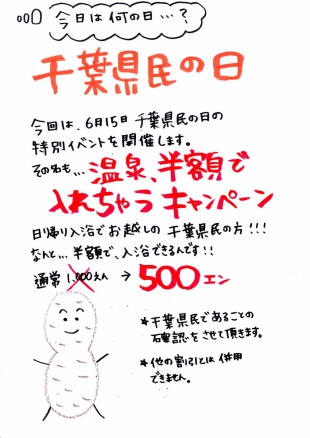 今日は何の日…?
千葉県民の日
今回は、6月15日 千葉県民の日の
特別イベントを開催します。
その名も…温泉、半額で
入れちゃうキャンペーン
日帰り入浴でお越しの 千葉県民の方!!!
なんと…半額で、入浴できるんです!!
通常 1,000えん → 500エン
*千葉県民であることの
確認をさせて頂きます。
*他の割引とは併用
できません。